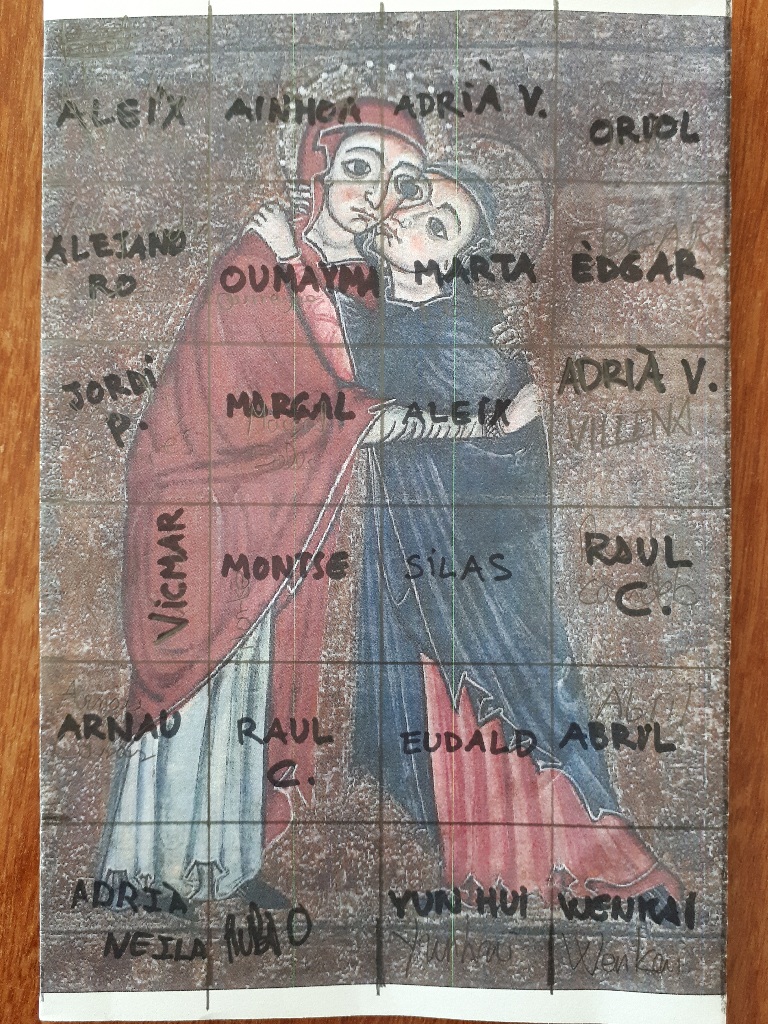 ALEIX AINHOA ADRIÀ V. ORIOL
ALEJAND
RO OUMAYMA MARTA ÈDGAR
JORDI
P. MARÇAL ALEIX ADRIÀ V.
VILLENA
VICMAR MONTSE SILAS RAUL
C.
Abril
ARNAU RAUL
C. EUDALD ABRIL
ADRIÀ
NEILA RUBIO YUN HUI WENKAI
Yunhui Wenkai